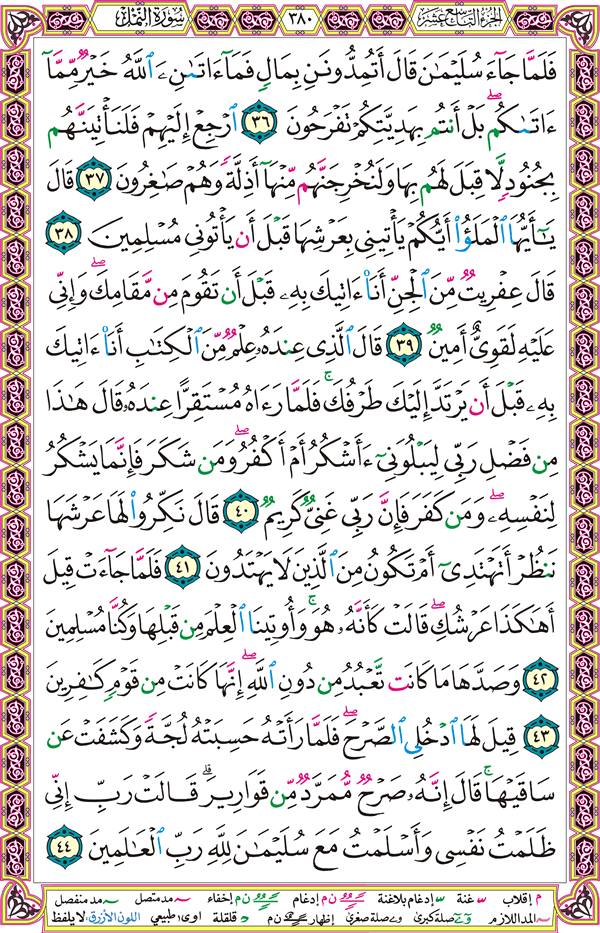 الجزء التاسع عشر ٣٨٠ سورة النمل
فَلَمَّا جَآءَ سُلَيْمَٰنَ قَالَ أَتُمِدُّونَنِ بِمَالٍ فَمَآ ءَاتَىٰنِۦَ ٱللَّهُ خَيْرٌ مِّمَّآ
ءَاتَىٰكُم بَلْ أَنتُم بِهَدِيَّتِكُمْ تَفْرَحُونَ ٣٦ ٱرْجِعْ إِلَيْهِمْ فَلَنَأْتِيَنَّهُم
بِجُنُودٍ لَّا قِبَلَ لَهُم بِهَا وَلَنُخْرِجَنَّهُم مِّنْهَآ أَذِلَّةً وَهُمْ صَٰغِرُونَ ٣٧ قَالَ
يَٰٓأَيُّهَا ٱلْمَلَؤُا۟ أَيُّكُمْ يَأْتِينِي بِعَرْشِهَا قَبْلَ أَن يَأْتُونِي مُسْلِمِينَ ٣٨
قَالَ عِفْرِيتٌ مِّنَ ٱلْجِنِّ أَنَا۠ ءَاتِيكَ بِهِۦ قَبْلَ أَن تَقُومَ مِن مَّقَامِكَ ۖ وَإِنِّي
عَلَيْهِ لَقَوِيٌّ أَمِينٌ ٣٩ قَالَ ٱلَّذِي عِندَهُۥ عِلْمٌ مِّنَ ٱلْكِتَٰبِ أَنَا۠ ءَاتِيكَ
بِهِۦ قَبْلَ أَن يَرْتَدَّ إِلَيْكَ طَرْفُكَ ۚ فَلَمَّا رَءَاهُ مُسْتَقِرًّا عِندَهُۥ قَالَ هَٰذَا
مِن فَضْلِ رَبِّي لِيَبْلُوَنِيٓ ءَأَشْكُرُ أَمْ أَكْفُرُ ۖ وَمَن شَكَرَ فَإِنَّمَا يَشْكُرُ
لِنَفْسِهِۦ ۖ وَمَن كَفَرَ فَإِنَّ رَبِّي غَنِيٌّ كَرِيمٌ ٤٠ قَالَ نَكِّرُوا۟ لَهَا عَرْشَهَا
نَنظُرْ أَتَهْتَدِيٓ أَمْ تَكُونُ مِنَ ٱلَّذِينَ لَا يَهْتَدُونَ ٤١ فَلَمَّا جَآءَتْ قِيلَ
أَهَٰكَذَا عَرْشُكِ ۖ قَالَتْ كَأَنَّهُۥ هُوَ ۚ وَأُوتِينَا ٱلْعِلْمَ مِن قَبْلِهَا وَكُنَّا مُسْلِمِينَ
٤٢ وَصَدَّهَا مَا كَانَت تَّعْبُدُ مِن دُونِ ٱللَّهِ ۖ إِنَّهَا كَانَتْ مِن قَوْمٍ كَٰفِرِينَ
٤٣ قِيلَ لَهَا ٱدْخُلِي ٱلصَّرْحَ ۖ فَلَمَّا رَأَتْهُ حَسِبَتْهُ لُجَّةً وَكَشَفَتْ عَن
سَاقَيْهَا ۚ قَالَ إِنَّهُۥ صَرْحٌ مُّمَرَّدٌ مِّن قَوَارِيرَ ۗ قَالَتْ رَبِّ إِنِّي
ظَلَمْتُ نَفْسِي وَأَسْلَمْتُ مَعَ سُلَيْمَٰنَ لِلَّهِ رَبِّ ٱلْعَٰلَمِينَ ٤٤
م إقلاب غنة إدغام بلاغنة ن م إدغام ن م إخفاء مد متصل مد منفصل
المد اللازم صلة كبرى صلة صغرى إظهار ن م قلقلة اوى طبيعي اللون الأزرق لا يلفظ